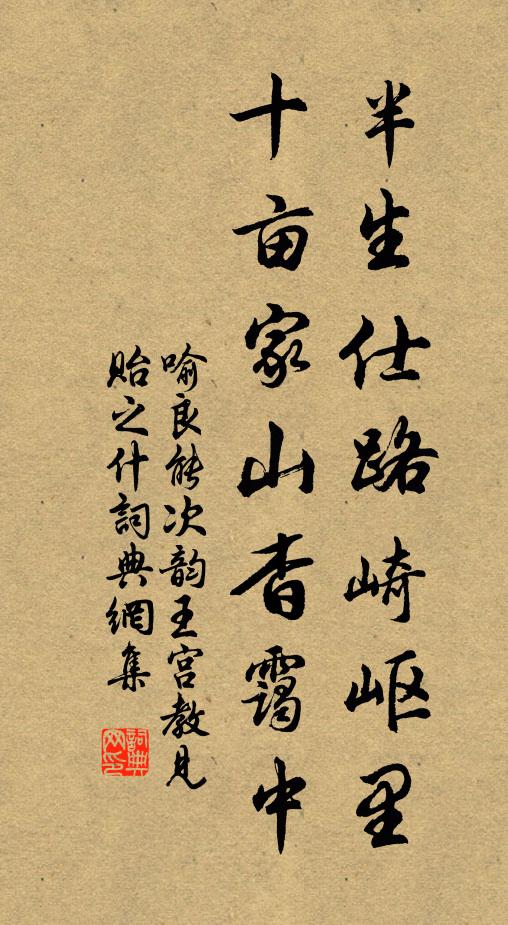 半生仕路崎岖里
十亩家山杳霭中
喻良能次韵王宫教见
贻之什詞典網集
詞典网印